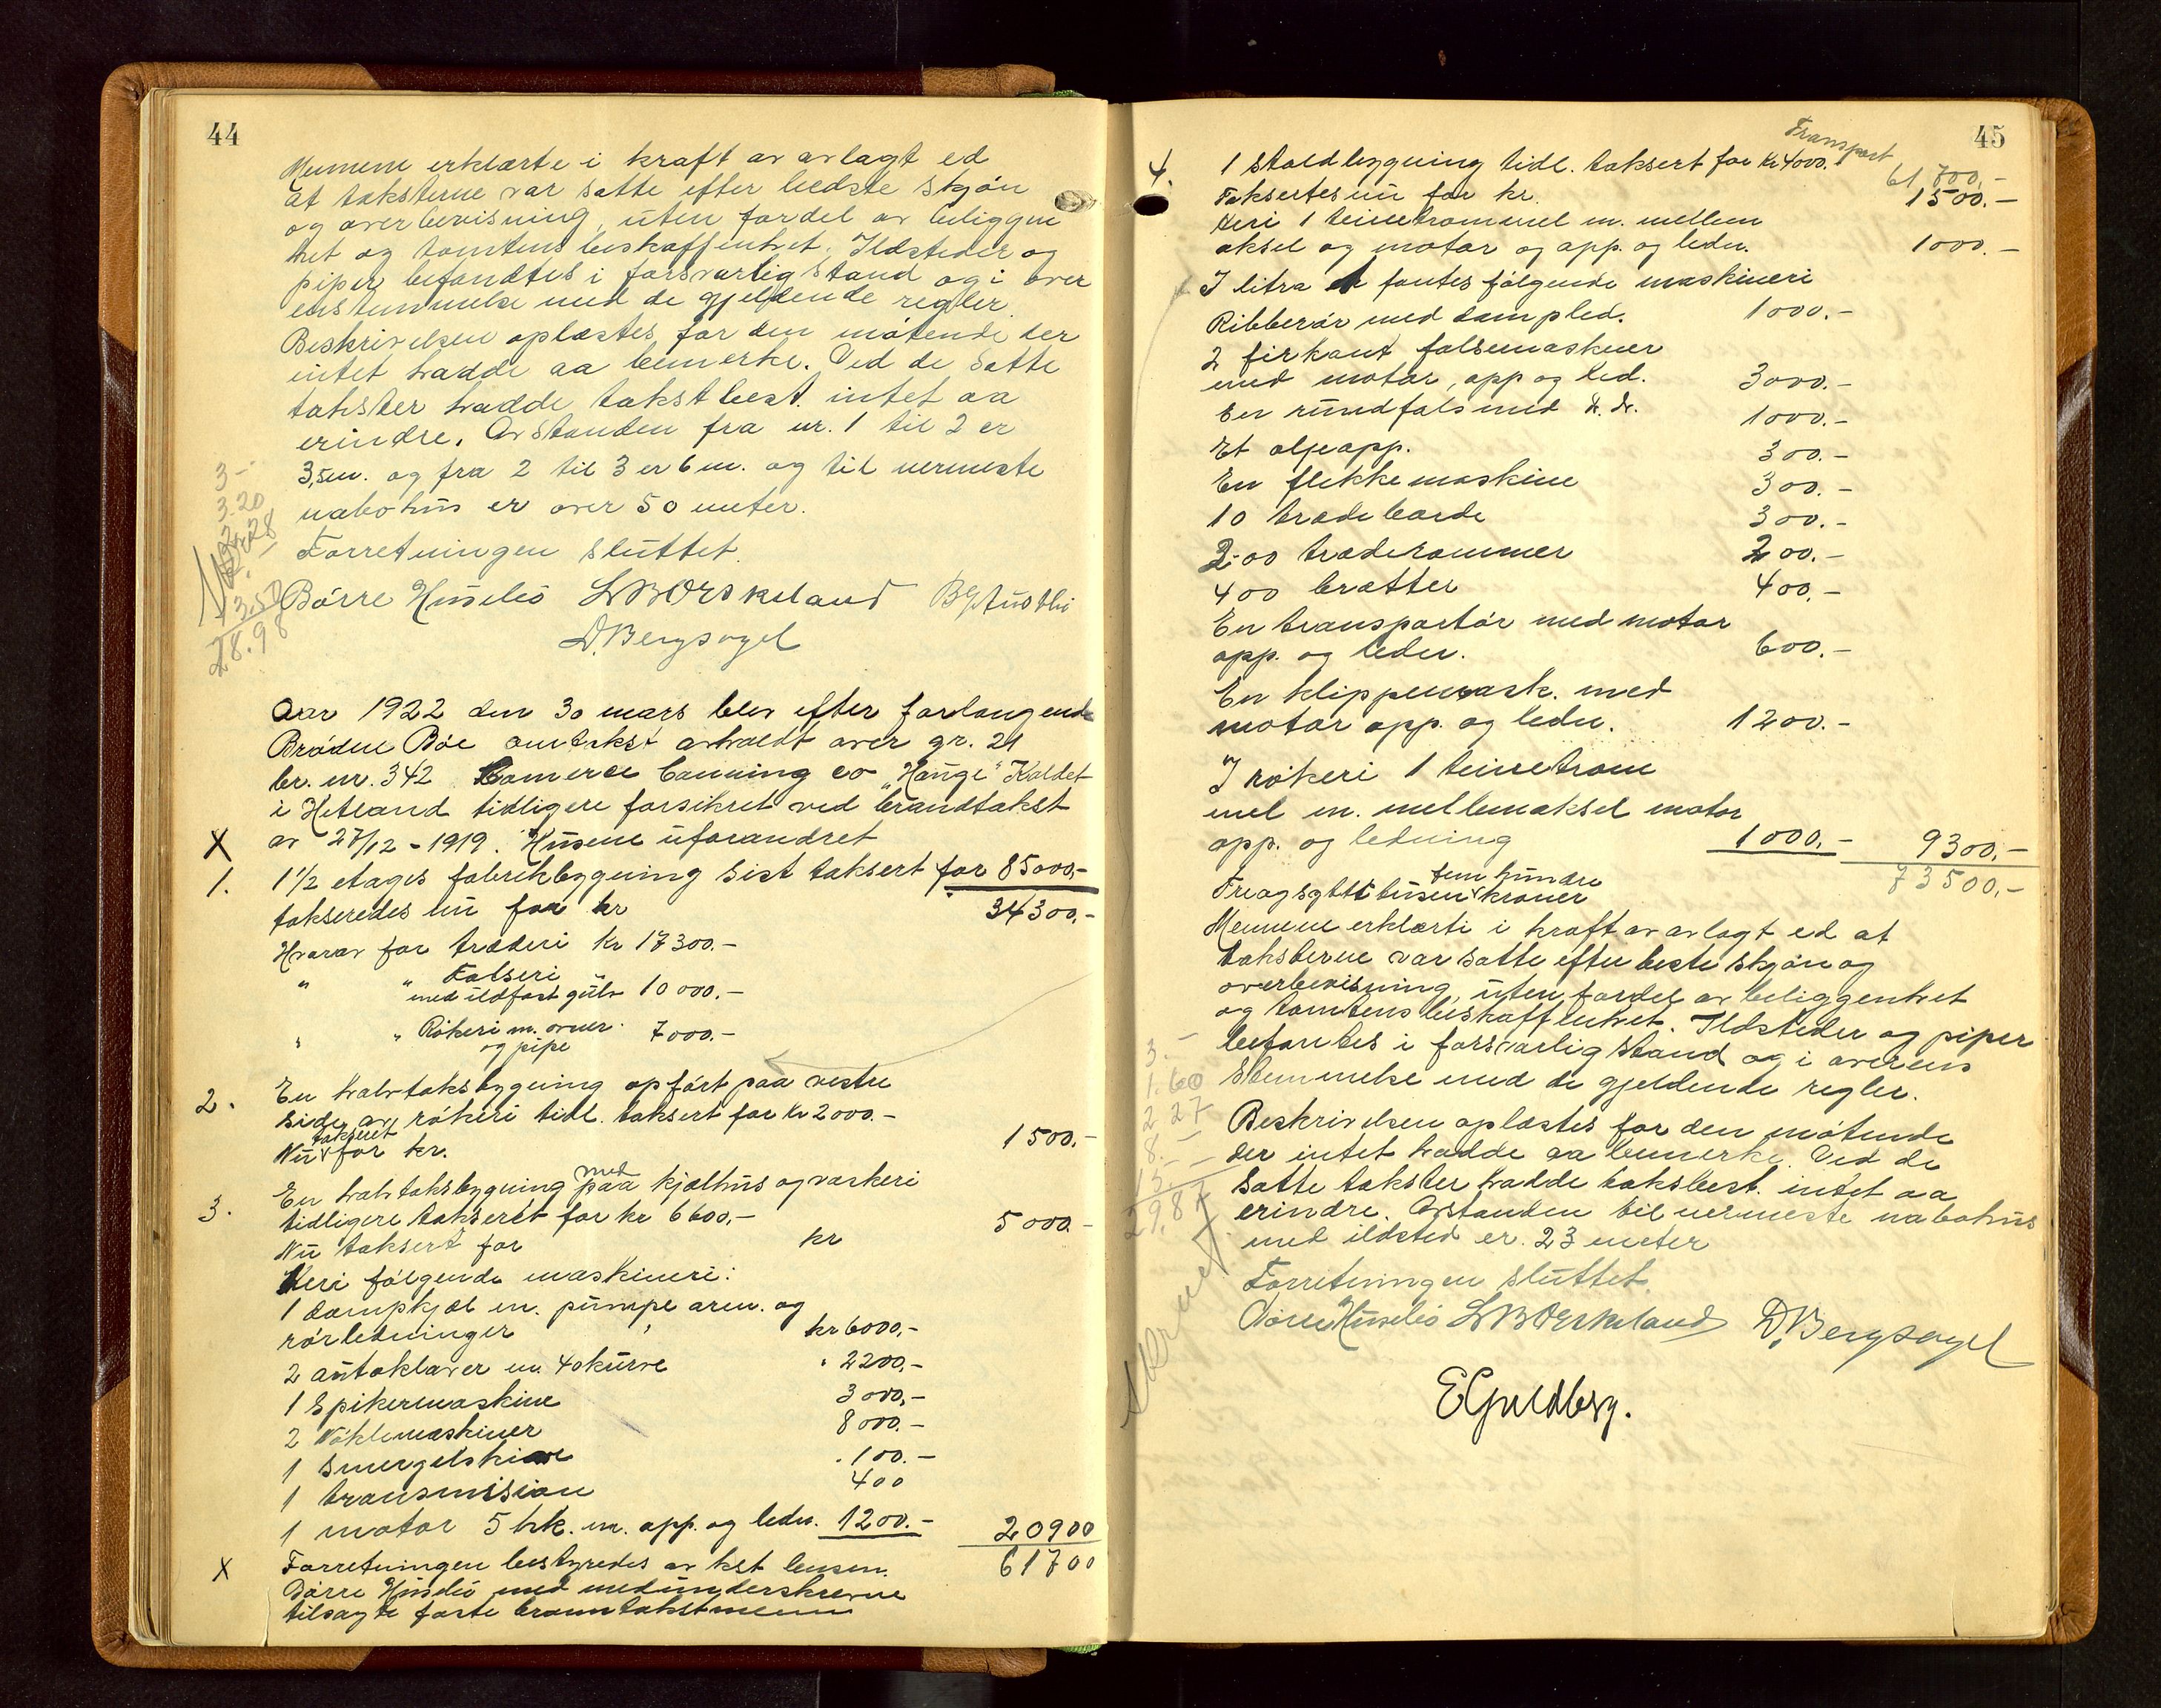 44
Mennene erklærte i kraft av avlagt ed
at taksterne var satte efter bedste skjøn
og overbevisning, uten fordel av beliggen
het og tomtens beskaffenhet. Ildsteder og
piper befandtes i forsvarlig stand og i over
enstemmelse med de gjeldende regler.
Beskrivelsen oplæstes for den møtende der
intet hadde aa bemerke. Ved de satte
takster hadde takstbest. intet aa
erindre. Avstanden fra nr. 1 til 2 er
3,5m. og fra 2 til 3 er 6 m. og til nermeste
nabohus er over 50 meter.
Forretningen sluttet.
Børre Husebø LB Orskeland
D. Bergsagel
3-
3.20
13.50
28.98
Aar 1922 den 30 mars blev efter forlangende
Brødne Böe omtakst avholdt over gr. 21
br. nr. 342 Comerce Canning co "Hauge" Kaldet
i Hetland tidligere forsikret ved brandtakst
X av 27/12 - 1919. Husene uforandret
1. 1 1/2 etages fabrikbygning sist taksert for 85000,-
takseredes nu for kr 34300,-
Hvorav for træderi kr 17300.-
" " Falseri
med ildfast gulv 10000.-
" " Røkeri m. ovner
og pipe 7000.-
2. En halvtaksbygning opført paa vestre
side av røkeri tidl. taksert for kr 2000.-
Nu taksert for kr. 1500,-
3. En halvtaksbygning med paa kjælhus og vaskeri
tidligere takseret for kr 6600,-
Nu taksert for kr 5000.-
Heri følgende maskineri:
1 dampkjel m. pumpe arm. og
rørledninger kr 6000,-
2 autoklaver m. 40 kurve " 2200,-
1 Spikermaskine 3000,-
2 Nøklemaskiner 8000.-
1 Smergelskive 100.-
1 transmision 400
1 motor 5 hk. m. app. og ledn. 1200.- 20900
61700
X Forretningen bestyredes av kst lensm.
Børre Husebø med medunderskrevne
tilsagte faste brantakstmenn
45
Transport
61,700,-
4. 1 staldbygning tidl. taksert for kr 4000.-
Taksertes nu for kr. 1500.-
Heri 1 teinetrommel m. mellem
aksel og motor og app. og ledn. 1000.-
I litra A fantes følgende maskineri
Ribberør med dampled. 1000.-
2 firkant falsemaskner
med motor, app og led. 3000.-
En rundfals med d. d. 1000.-
Et oljeapp. 300.-
En flekkemaskine 300.-
10 trædeborde 300.-
200 træderammer 200.-
400 bratter 400.-
En transportør med motor
app. og leder. 600.-
En klippemask. med
motor app. og ledn. 1200.-
I røkeri 1 teinetrom
mel m. mellemaksel motor
app. og ledning 1000.- 9300,-
73500,-
Treogsytti tusen fem hundre kroner
Mennene erklærte i kraft av avlagt ed at
taksterne var satte efter beste skjøn og
overbevisning, uten fordel av beliggenhet
og tomtens beskaffenhet. Ildsteder og piper
befantes i forsvarlig stand og i overens
stemmelse med de gjeldende regler.
Beskrivelsen oplæstes for den møtende
der intet hadde aa bemerke. Ved de
satte takster hadde takstbest. intet aa
erindre. Avstanden til nermeste nabohus
med ildsted er 23 meter
Forretningen sluttet.
Børre Husebø LB Orskeland D. Bergsagel
E Guldberg.
3.-
1.60
2.27
8.-
15.-
29.87